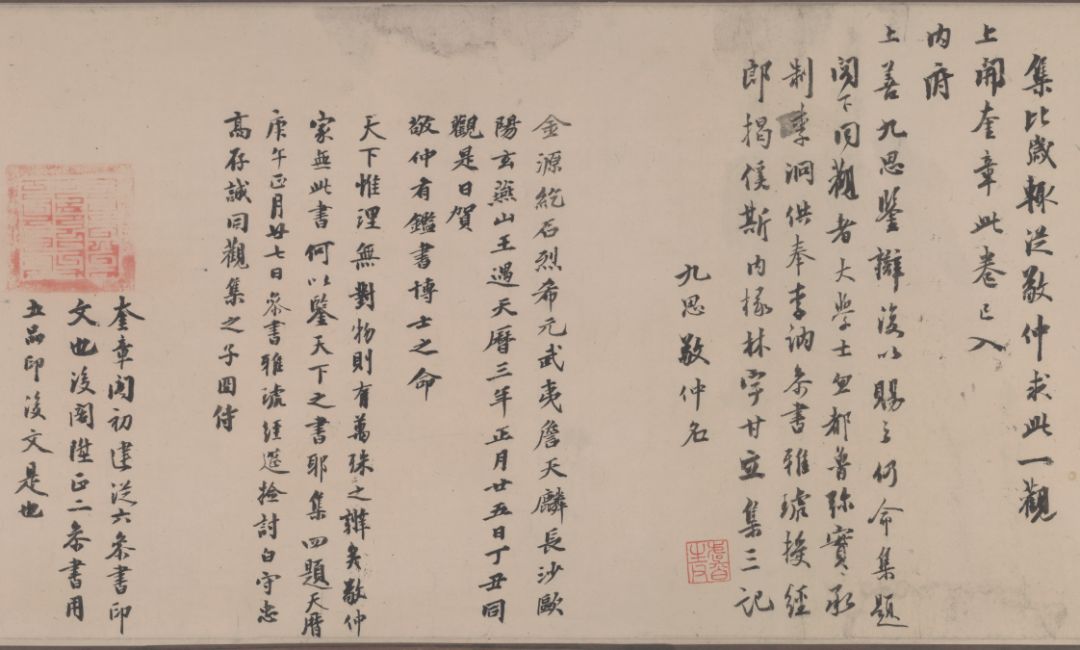 集比歲輙從敬仲求此一觀
上開奎章此卷已入
內府
上善九思鑒辯復以賜之仍命集題
閣下同觀者大學士忽都魯弥實承
制李泂供奉李訥參書雅琥授經
郎揭傒斯內掾林宇甘立集三記
九思敬仲名
金源紇石烈希元武夷詹天麟長沙歐
陽玄燕山王遇天曆三年正月廿五日丁丑同
觀是日賀
敬仲有鑑書博士之命
天下惟理無對物則有萬殊之辨矣敬仲
家無此書何以鑒天下之書耶集四題天曆
庚午正月廿七日參書雅琥經筵撿討白守忠
高存誠同觀集之子囬侍
奎章閣初建從六參書印
文也後閣陞正二參書用
五品印後文是也